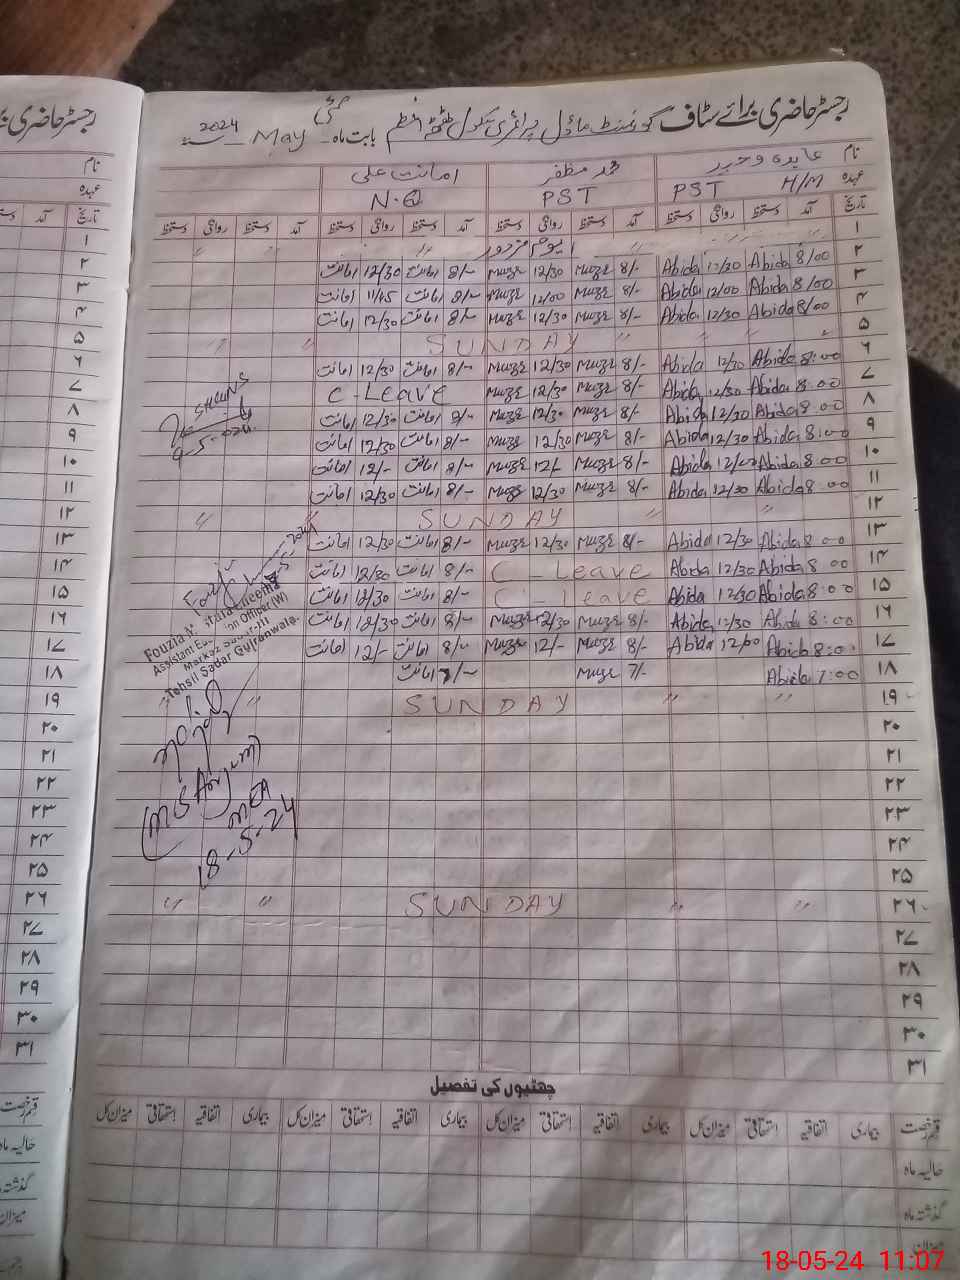 رجسٹر حاضری برائے سٹاف گورنمنٹ ماڈل پرائمری سکول بابت ماہ مئی May 2024
نام عابدہ وحید محمد مظفر امانت علی
عہدہ H/M PST PST N.Q
تاریخ آمد دستخط روانگی دستخط آمد دستخط روانگی دستخط آمد دستخط روانگی دستخط آمد دستخط روانگی دستخط
۱ یوم مزدور
۲ 8/00 Abida 12/30 Abida 8/- Muzr 12/30 Muzr 8/- امانت 12/30 امانت
۳ 8/00 Abida 12/00 Abida 8/- Muzr 12/00 Muzr 8/- امانت 11/45 امانت
۴ 8/00 Abida 12/30 Abida 8/- Muzr 12/30 Muzr 8/- امانت 12/30 امانت
۵ SUNDAY
۶ 8:00 Abida 12/30 Abida 8/- Muzr 12/30 Muzr 8/- امانت 12/30 امانت
۷ 8:00 Abida 12/30 Abida 8/- Muzr 12/30 Muzr C-Leave
۸ 8:00 Abida 12/30 Abida 8/- Muzr 12/30 Muzr 8/- امانت 12/30 امانت
۹ 8:00 Abida 12/30 Abida 8/- Muzr 12/30 Muzr 8/- امانت 12/30 امانت
۱۰ 8:00 Abida 12/00 Abida 8/- Muzr 12/- Muzr 8/- امانت 12/- امانت
۱۱ 8:00 Abida 12/30 Abida 8/- Muzr 12/30 Muzr 8/- امانت 12/30 امانت
۱۲ SUNDAY
۱۳ 8:00 Abida 12/30 Abida 8/- Muzr 12/30 Muzr 8/- امانت 12/30 امانت
۱۴ 8:00 Abida 12/30 Abida C-Leave 8/- امانت 12/30 امانت
۱۵ 8:00 Abida 12/30 Abida C-leave 8/- امانت 12/30 امانت
۱۶ 8:00 Abida 12/30 Abida 8/- Muzr 12/30 Muzr 8/- امانت 12/30 امانت
۱۷ 8:00 Abida 12:00 Abida 8/- Muzr 12/- Muzr 8/- امانت 12/- امانت
۱۸ 7:00 Abida 7/- Muzr 7/- امانت
۱۹ SUNDAY
۲۰
۲۱
۲۲
۲۳
۲۴
۲۵
۲۶ SUNDAY
۲۷
۲۸
۲۹
۳۰
۳۱
9-5-024
Fouzia
Assistant Education Officer (W)
Markaz
Tehsil Sadar Gujranwala.
(MS Anjum)
MEA
18-5-24
چھٹیوں کی تفصیل
قسم رخصت بیماری اتفاقیہ استحقاقی میزان کل بیماری اتفاقیہ استحقاقی میزان کل بیماری اتفاقیہ استحقاقی میزان کل بیماری اتفاقیہ استحقاقی میزان کل
حالیہ ماہ
گذشتہ ماہ
میزان
رجسٹر حاضری
نام
عہدہ
تاریخ آمد دستخط
۱
۲
۳
۴
۵
۶
۷
۸
۹
۱۰
۱۱
۱۲
۱۳
۱۴
۱۵
۱۶
۱۷
۱۸
۱۹
۲۰
۲۱
۲۲
۲۳
۲۴
۲۵
۲۶
۲۷
۲۸
۲۹
۳۰
۳۱
قسم رخصت
حالیہ ماہ
گذشتہ
میزان
18-05-24 11:07